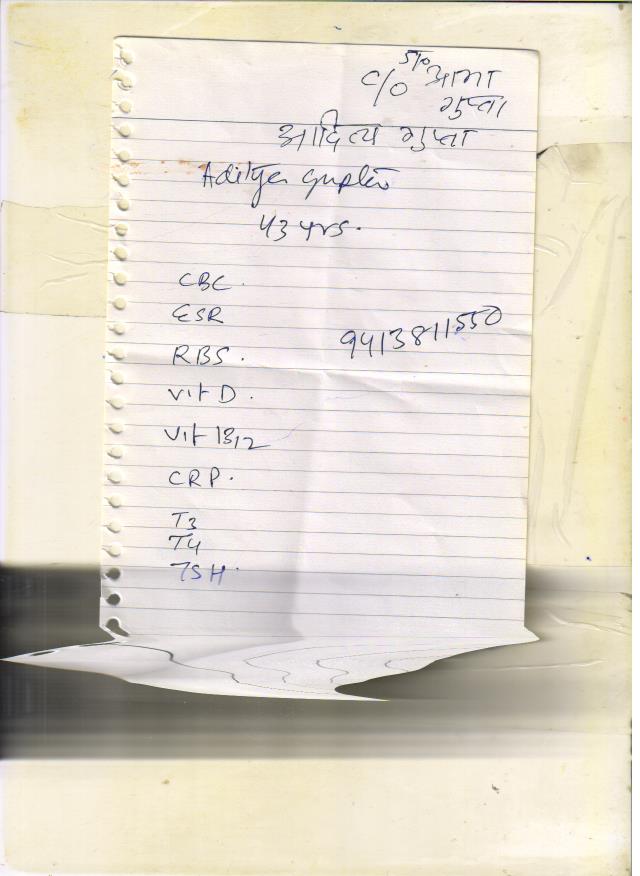 S/o
C/o आभा
गुप्ता
आदित्य गुप्ता
Aditya Gupta
43 yrs.
CBC.
ESR
9413811550
RBS.
Vit D.
Vit B12
CRP.
T3
T4
TSH.